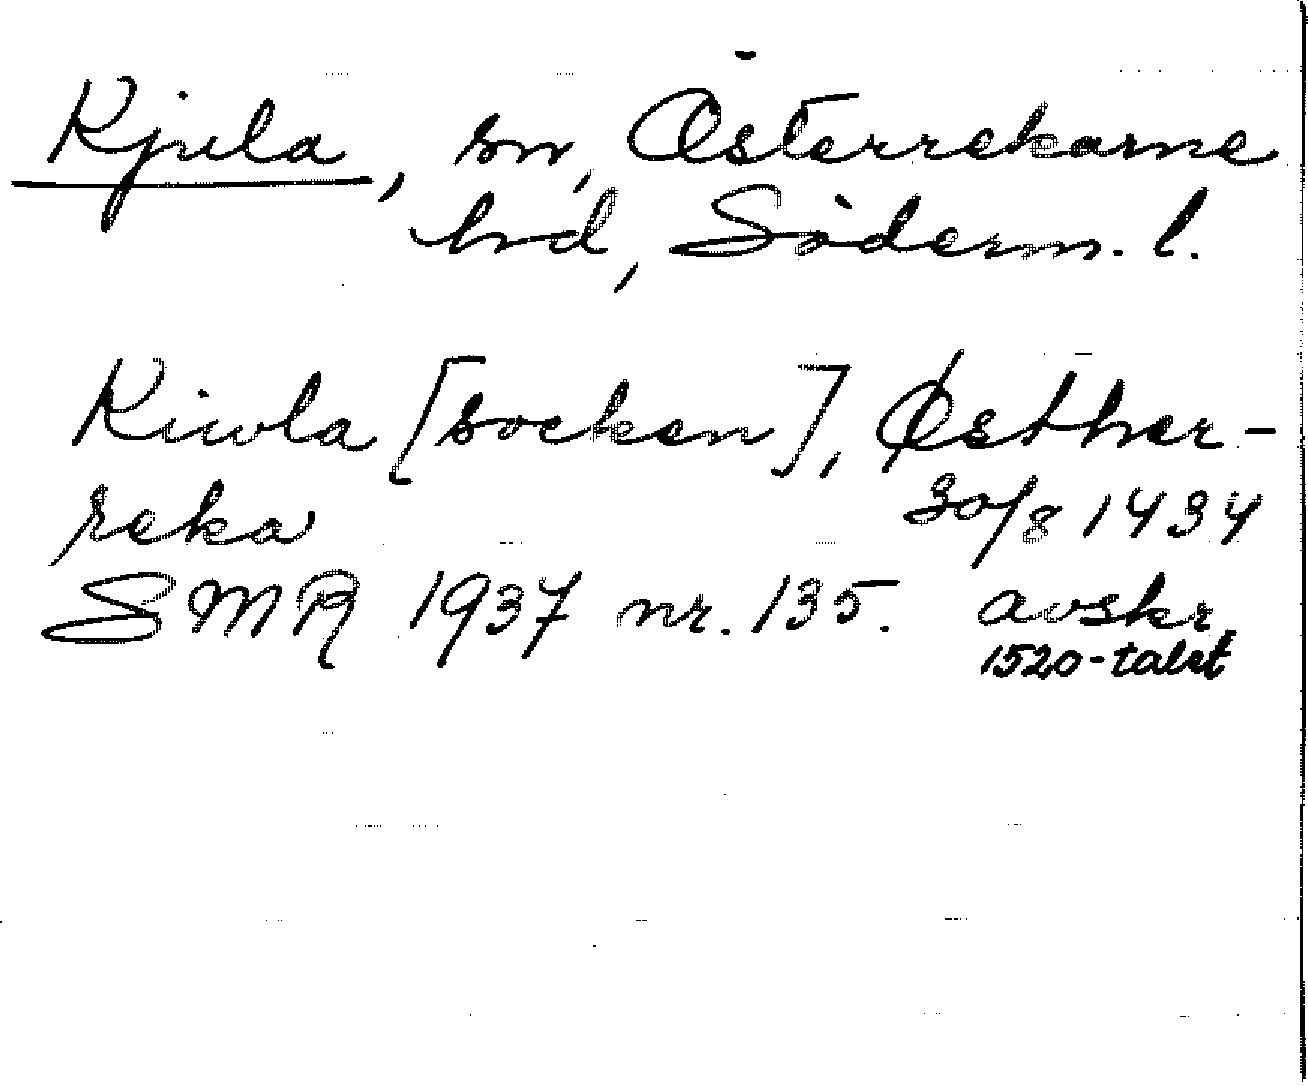 Kjula, sn, Österrekarne
hd, Söderm. l.
Kiwla [socken], Østher-
reka 30/8 1434
SMR 1937 nr. 135. avskr.
1520-talet